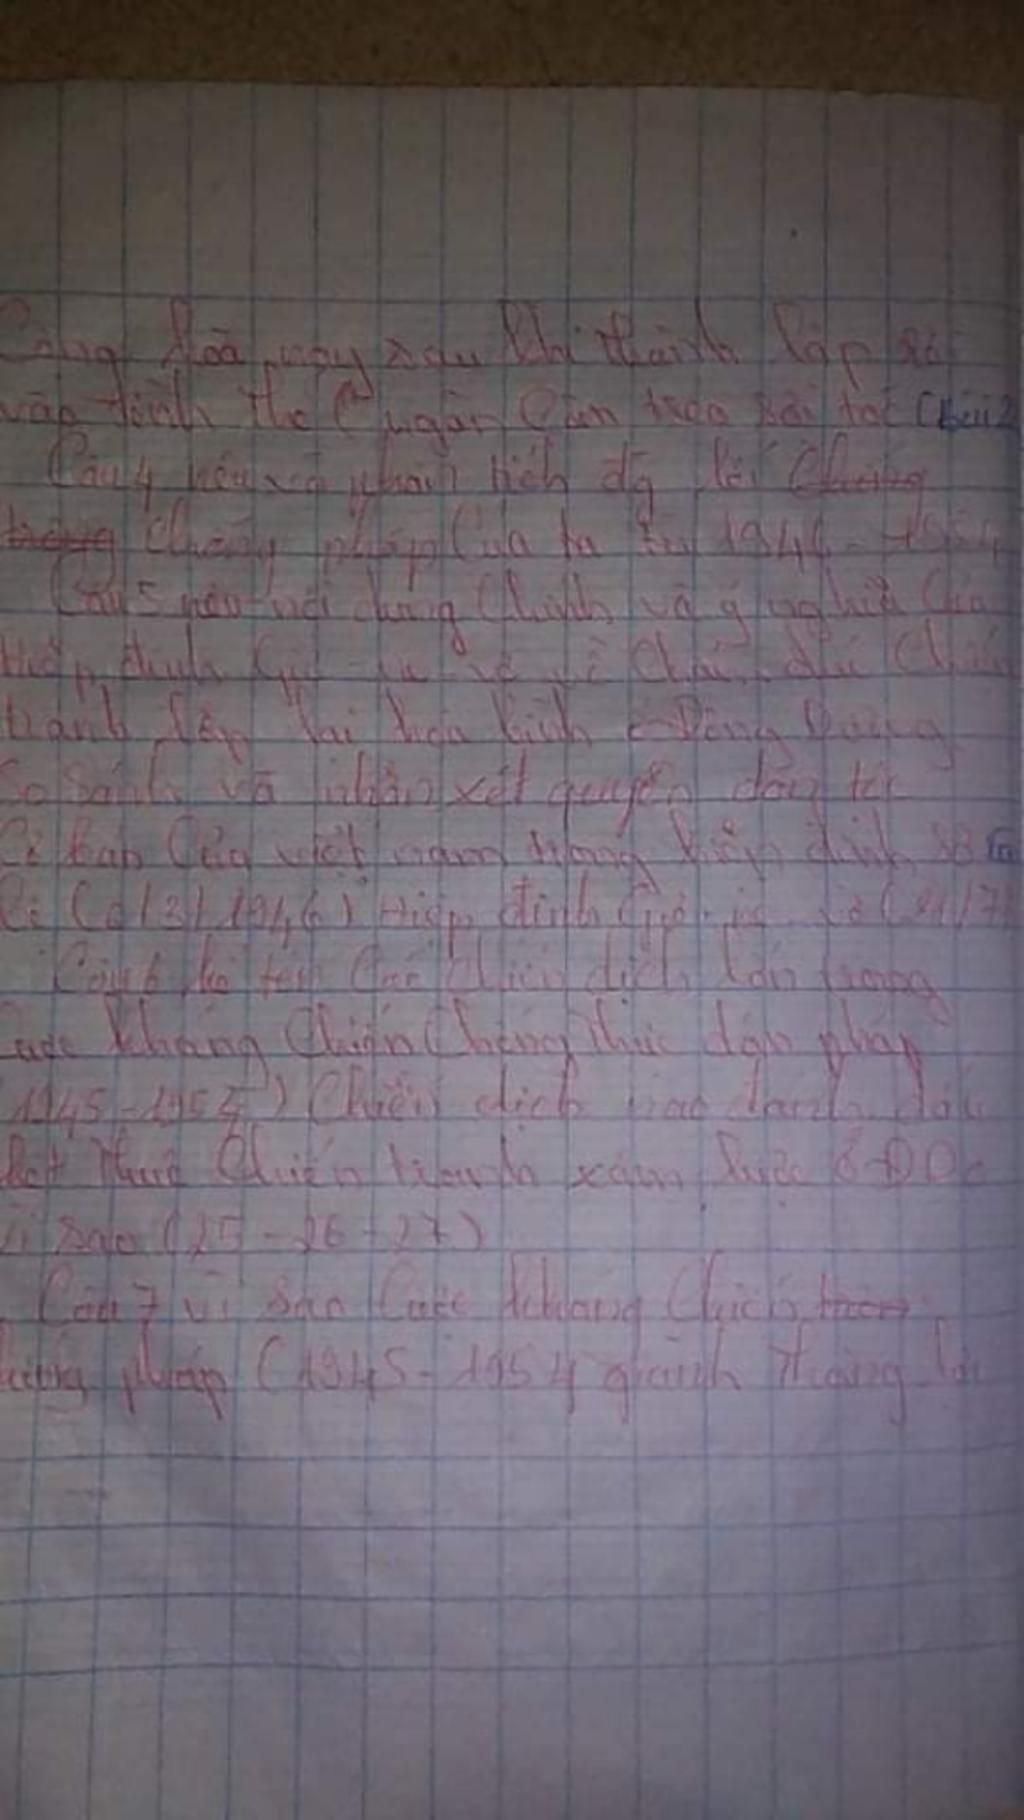 Cộng hoà ngay sau khi thành lập rơi
vào tình thế ngàn cân treo sợi tóc (Bài 2
Câu 4 nêu và phân tích đg lối Chống
trong Chống pháp Của ta 1946 - 1954
Câu 5 nêu nội dung Chính và ý nghĩa Của
Hiệp định Giơ-ne-vơ về Chấm dứt Chiến
tranh lập lại hòa bình ở Đông Dương
So Sánh và nhận xét quyền dân tộc
Cơ bản Của việt nam trong hiệp định SB
bộ (6/3/1946) Hiệp định Giơ-ne-vơ (21/7/
Câu 6 kể tên Các Chiến dịch lớn trong
Cuộc kháng Chiến Chống thực dân pháp
(1945-1954) Chiến dịch nào đánh dấu
kết thúc Chiến tranh xâm lược ở ĐD
vì sao (25-26-27)
Câu 7 vì sao Cuộc kháng Chiến
Chống pháp (1945-1954 giành thắng lợi